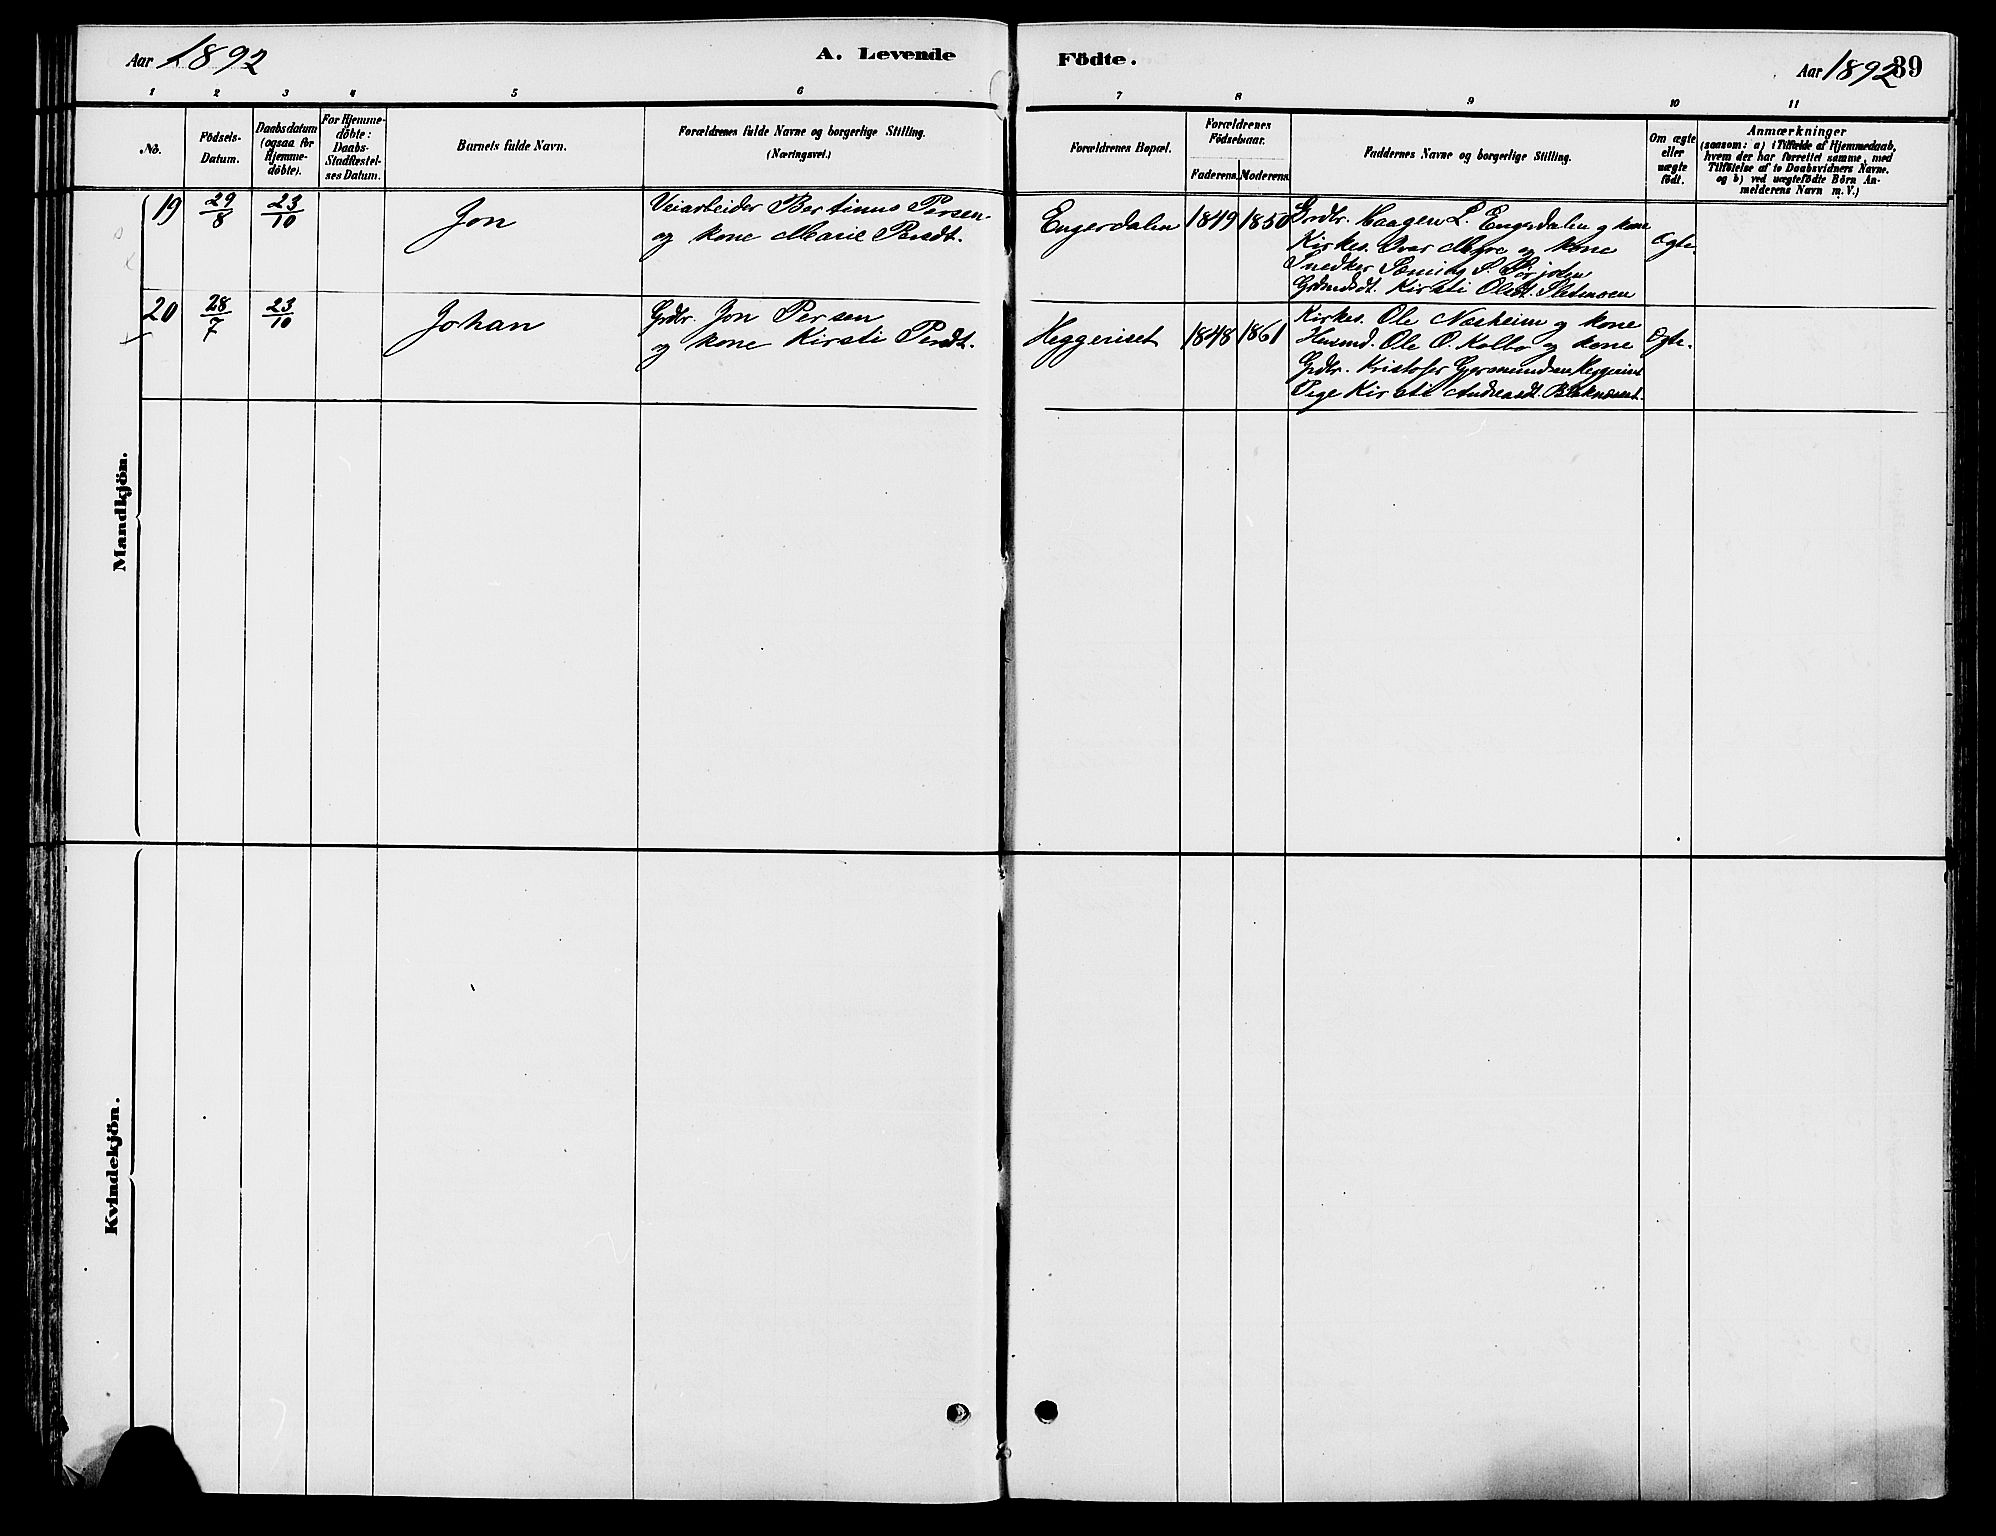 Aar 1892
A. Levende
Födte.
Aar 1892
89
1 2 3 4 5 6 7 8 9 10 11
No.
Födsels-
Datum.
Daabsdatum
(ogsaa for
Hjemme-
döbte).
For Hjemme-
döbte:
Daabs-
Stadfæstel-
ses Datum.
Barnets fulde Navn.
Forældrenes fulde Navne og borgerlige Stilling.
(Næringsvei.)
Forældrenes Bopæl.
Forældrenes
Födselsaar.
Faderens. Moderens.
Faddernes Navne og borgerlige Stilling.
Om ægte
eller
uægte
födt.
Anmærkninger
(saasom: a) i Tilfælde af Hjemmedaab,
hvem der har forrettet samme, med
Tilföielse af to Daabsvidners Navne.
og b) ved uægtefödte Börn An-
melderens Navn m. V.)
Mandkjön.
19
29/8
23/10
Jon
Veiarbeider Bertinus Persen
og kone Marie Persdt.
Engerdalen
1849
1850
Grdbr. Haagen L. Engerdalen og kone
Kirkes. Ivar Myre og kone
Snedker
Kirsti Olsdt.
Ægte.
20
28/7
23/10
Johan
Grdbr. Jon Persen
og kone Kirsti Persdt.
Heggeriset
1848
1861
Kirkes. Ole Næsheim og kone
Husmd. Ole O. Kolbo og kone
Grdbr. Kristofer Gjermundsen Heggeriset
Pige Kirsti Andreasdt.
Ægte.
Kvindekjön.